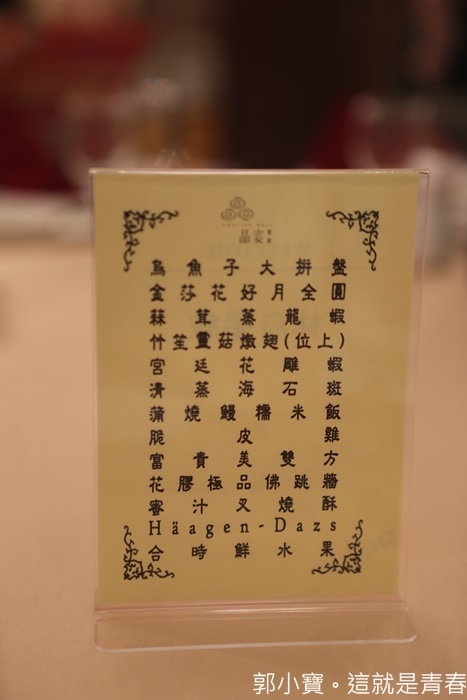 晶宴
烏魚子大拼盤
金莎花好月全圓
蒜茸蒸龍蝦
竹笙靈菇燉翅(位上)
宮廷花雕蝦
清蒸海石斑
蒲燒鰻糯米飯
脆皮雞
富貴美雙方
花膠極品佛跳牆
蜜汁叉燒酥
Häagen-Dazs
合時鮮水果
郭小寶。這就是青春